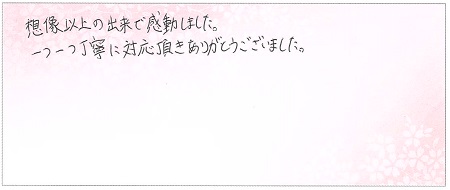 想像以上の出来で感動しました。
一つ一つ丁寧に対応頂きありがとうございました。